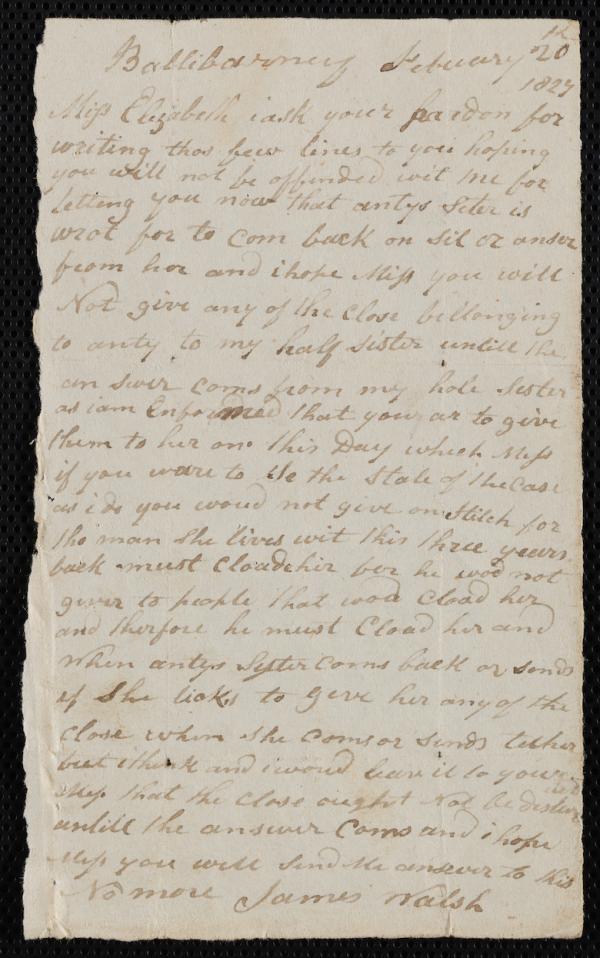 Ballibarney Febuary 20th
1827
Miss Elizabeth i ask your pardon for
writing thos few lines to you hoping
you will not be offinded wit me for
letting you now that antys Seter is
wrot for to com back on sil or anser
from hor and i hope Miss you will
Not give any of the close billonging
to anty to my half sister untill the
an swer coms from my hole Sister
as iam Enformed that your ar to give
them to her on this Day which Miss
if you ware to Se the State of the case
as i do you woud not give on Stitch for
the man She lives wit this three years
back must Cload hir for he wod not
giver to people that wod Cload her
and therfore he must Cload her and
when antys Syster coms back or sends
if She licks to give her any of the
close when she coms or sends tether
but i think and i woud leave it to your
Miss that the close ought Not be
untill the answer Coms and i hope
Miss you will Send Me answer to this
No more James Walsh